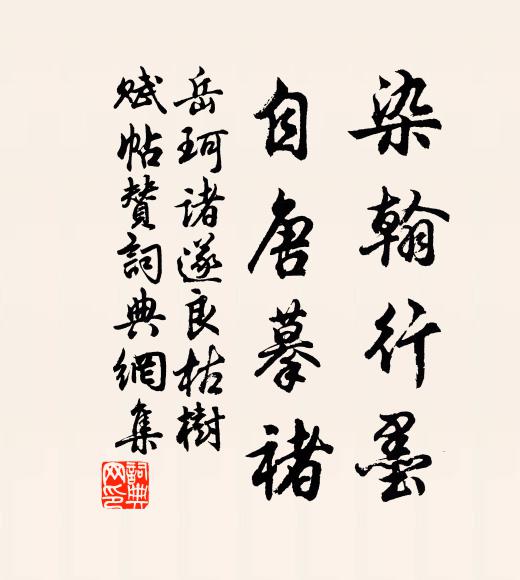 染翰行墨
自唐摹褚
岳珂諸遂良枯樹
賦帖贊詞典網集
詞典网印